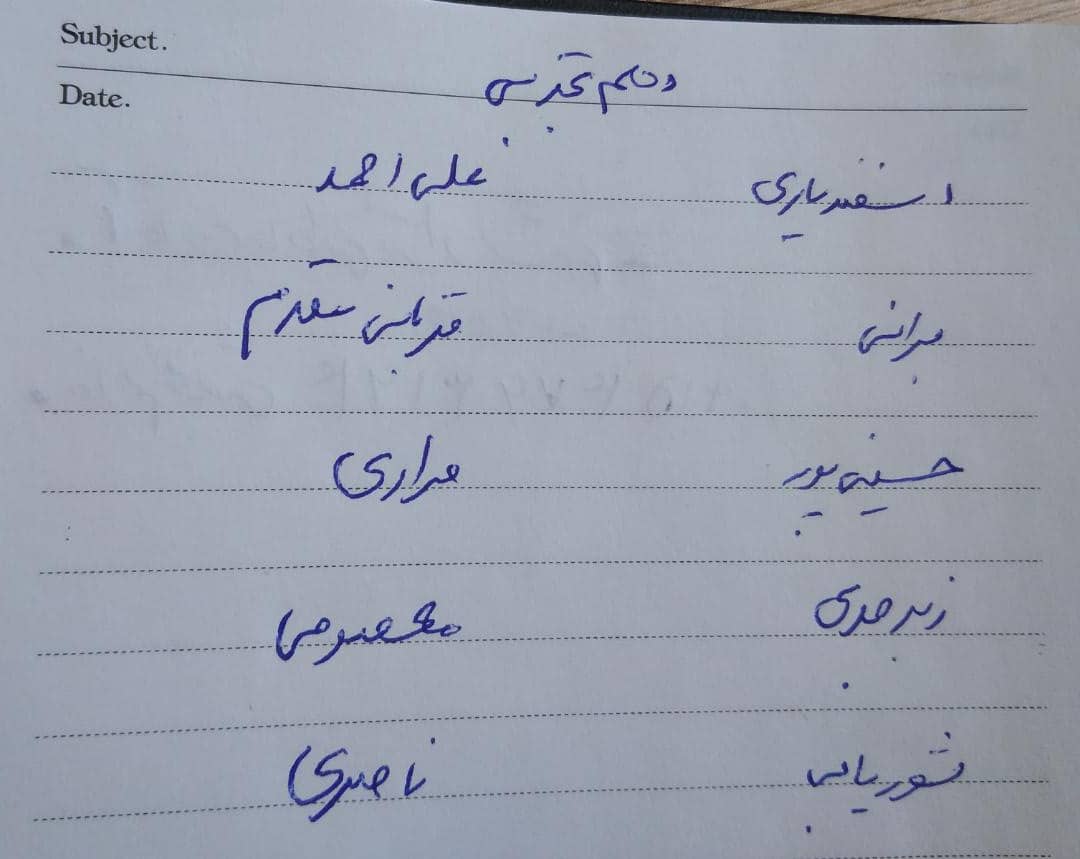 Subject.
Date.
دهم تجربی
اسفندیاری علی احمد
برانی قربانی مقدم
حسینی پور مرادی
زبرجدی معصومی
ناصری